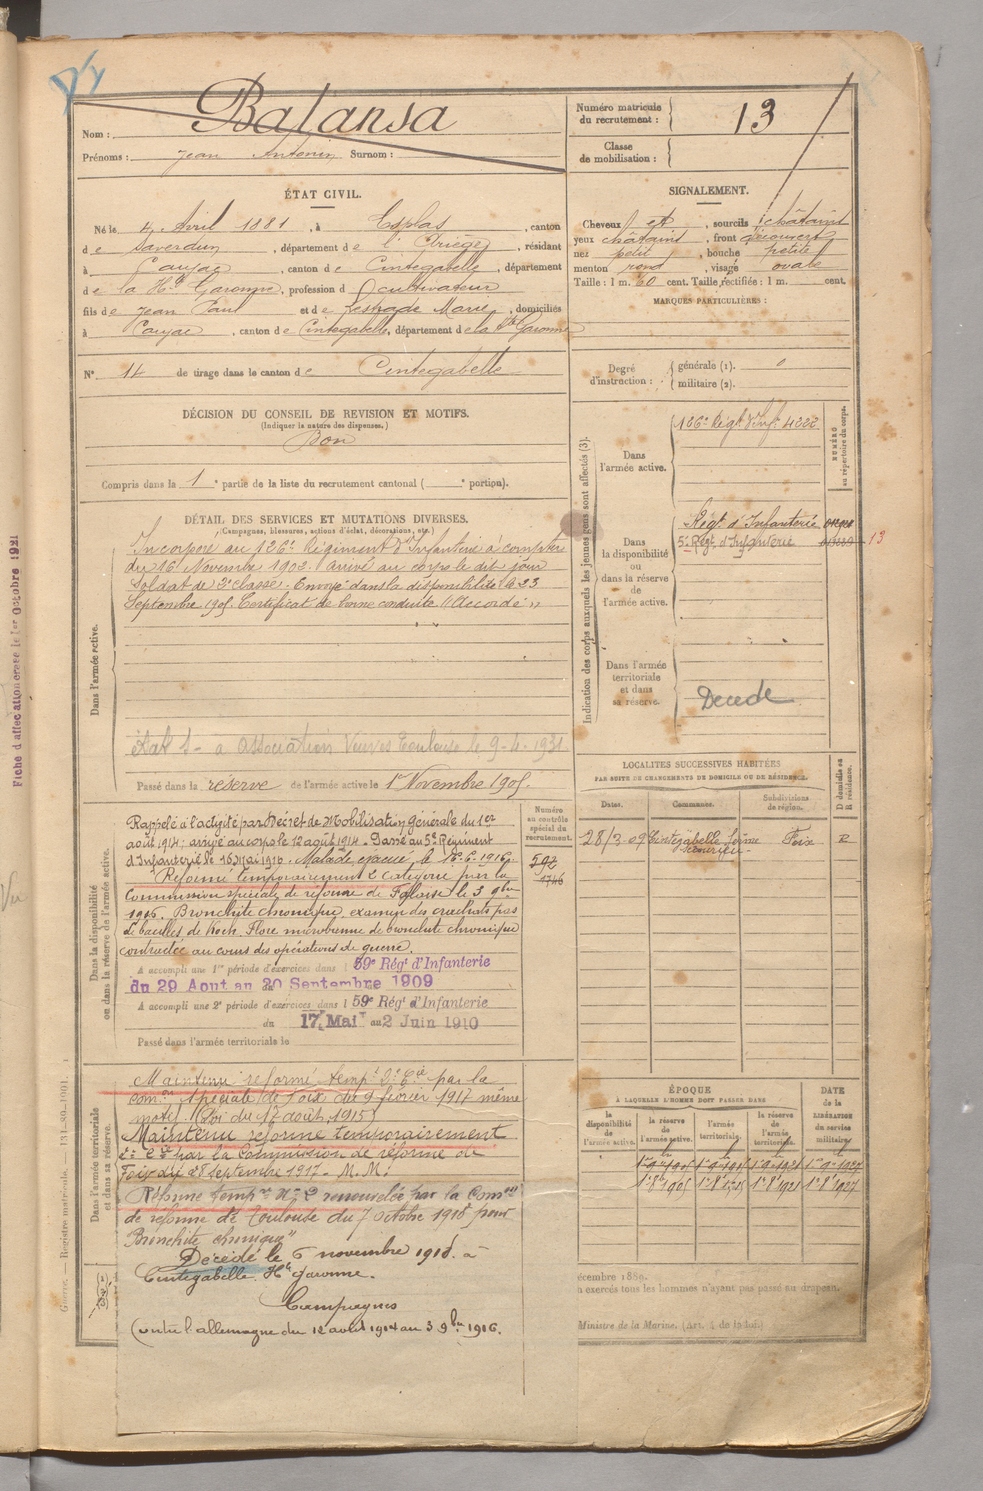 Balansa
Nom :
Prénoms : Jean Antonin Surnom :
Numéro matricule du recrutement : 13
Classe de mobilisation :
ÉTAT CIVIL.
Né le 4 Avril 1881, à Esplas, canton
de Saverdun, département de l'Ariège, résidant
à Caujac, canton de Cintegabelle, département
de la Hte Garonne, profession de cultivateur
fils de Jean Paul et de Lestrade Marie, domiciliés
à Caujac, canton de Cintegabelle, département de la Hte Garonne
N° 14 de tirage dans le canton de Cintegabelle
SIGNALEMENT.
Cheveux et, sourcils châtains
yeux châtains, front découvert
nez petit, bouche petite
menton rond, visage ovale
Taille : 1 m. 60 cent. Taille rectifiée : 1 m. cent.
MARQUES PARTICULIÈRES :
Degré d'instruction : générale (1).
militaire (2).
DÉCISION DU CONSEIL DE REVISION ET MOTIFS.
(Indiquer la nature des dispenses.)
Bon
Compris dans la 1e partie de la liste du recrutement cantonal ( e portion).
DÉTAIL DES SERVICES ET MUTATIONS DIVERSES.
(Campagnes, blessures, actions d'éclat, décorations, etc.)
Dans l'armée active.
Incorporé au 126e Régiment d'Infanterie à compter
du 16 Novembre 1902. Arrivé au corps le dit jour
Soldat de 2e classe. Envoyé dans la disponibilité le 23
Septembre 1905. Certificat de bonne conduite "Accordé"
à Association Veuves Toulouse le 9-4-1931
Passé dans la réserve de l'armée active le 1er Novembre 1905.
Indication des corps auxquels les jeunes gens sont affectés (3).
NUMÉRO au répertoire du corps.
Dans l'armée active.
126e Régt d'Inf. 4222
Dans la disponibilité ou dans la réserve de l'armée active.
Régt d'Infanterie
5e Régt d'Infanterie 13
Dans l'armée territoriale et dans sa réserve.
Décédé
LOCALITÉS SUCCESSIVES HABITÉES
PAR SUITE DE CHANGEMENTS DE DOMICILE OU DE RÉSIDENCE.
Dates. Communes. Subdivisions de région. D domicile ou R résidence.
28/3 09 Cintegabelle Foix R
Numéro au contrôle spécial du recrutement.
592
1746
Dans la disponibilité ou dans la réserve de l'armée active.
Rappelé à l'activité par Décret de Mobilisation générale du 1er
août 1914; arrivé au corps le 12 août 1914. Passé au 5e Régiment
d'Infanterie le 16 Mai 1916. Malade évacué le 18.6.1916.
Réformé temporairement 2e catégorie par la
Commission spéciale de réforme de Falaise le 3 9bre
1916. Bronchite chronique, examen des crachats pas
de bacilles de Koch. Flore microbienne de bronchite chronique
contractée au cours des opérations de guerre.
A accompli une 1re période d'exercices dans l 59e Régt d'Infanterie
du 29 Aout au 20 Septembre 1909
A accompli une 2e période d'exercices dans l 59e Régt d'Infanterie
du 17 Mai au 2 Juin 1910
Passé dans l'armée territoriale le
Dans l'armée territoriale et dans sa réserve.
Maintenu réformé tempt 2e Cie par la
comon spéciale de Foix du 9 février 1917 même
motif. (Loi du 17 août 1915)
Maintenu réformé temporairement
2e Cie par la Commission de réforme de
Foix du 28 septembre 1917. M.M.
Réforme tempre No 2 renouvelée par la Comon
de réforme de Toulouse du 7 octobre 1918 pour
"Bronchite chronique"
Décédé le 6 novembre 1918 à
Cintegabelle Hte Garonne.
Campagnes
Contre l'allemagne du 12 août 1914 au 3 9bre 1916.
ÉPOQUE
À LAQUELLE L'HOMME DOIT PASSER DANS
la disponibilité de l'armée active. la réserve de l'armée active. l'armée territoriale. la réserve de l'armée territoriale.
DATE de la LIBÉRATION du service militaire.
écembre 1889.
n exercés tous les hommes n'ayant pas passé au drapeau.
Ministre de la Marine. (Art. 4 de la loi.)
Fiche d'affectation créée le 1er Octobre 1921
Guerre. — Registre matricule.